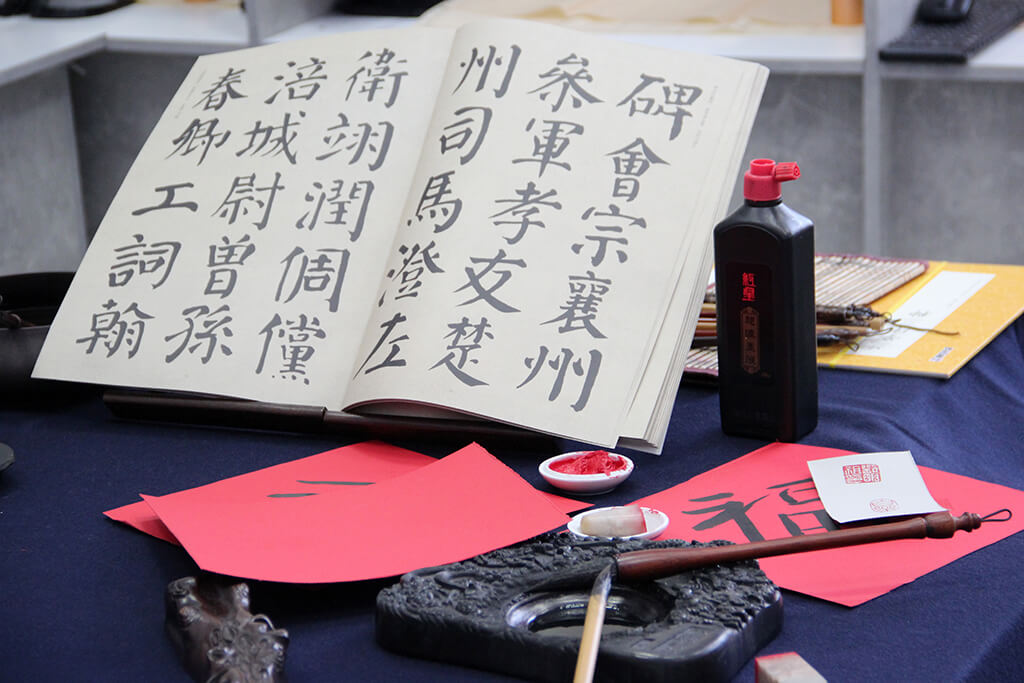 碑會宗襄州
叅軍孝友楚
州司馬澄左
衛翊潤倜儻
涪城尉曾孫
春卿工詞翰
福